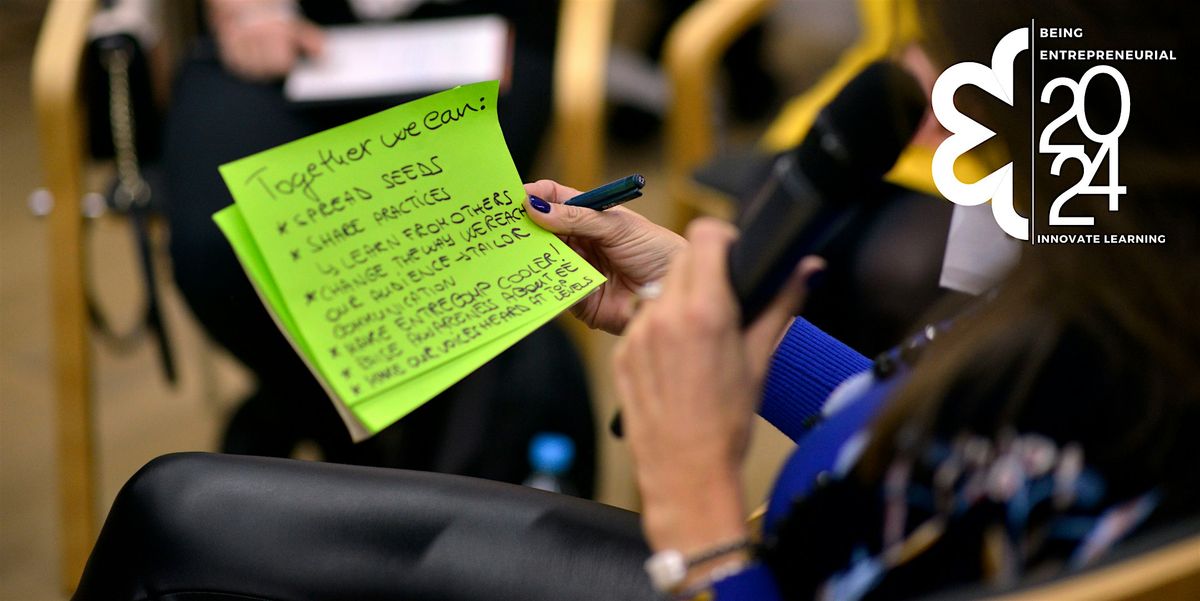 Together we can:
* SPREAD SEEDS
* SHARE PRACTICES
↳ LEARN FROM OTHERS
* CHANGE THE WAY WE REACH
OUR AUDIENCE → TAILOR
COMMUNICATION
* MAKE ENTRECOMP COOLER!
* RAISE AWARENESS ABOUT EE
* MAKE OUR VOICES HEARD AT TOP
LEVELS
BEING
ENTREPRENEURIAL
20
24
INNOVATE LEARNING